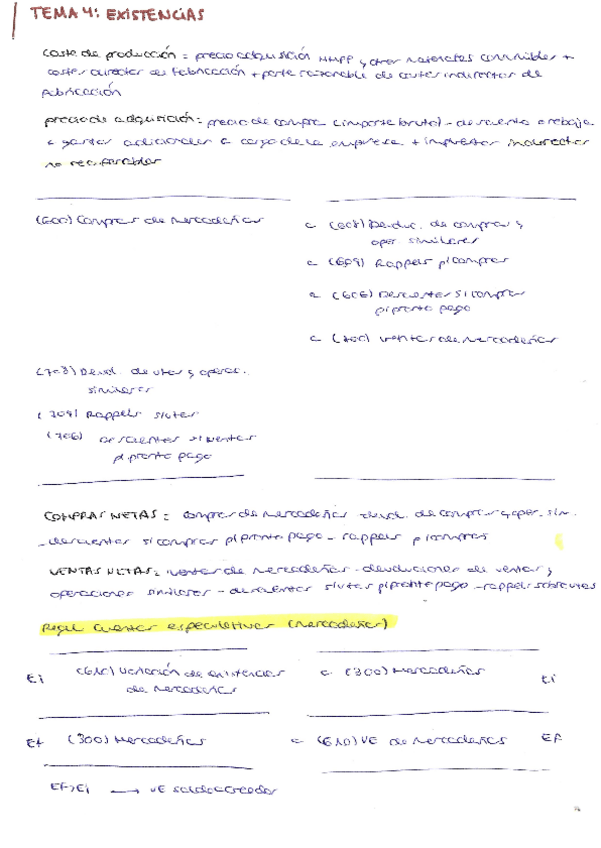 TEMA 4: EXISTENCIAS
Coste de producción = precio adquisición MMPP y otros materiales consumibles +
costes directos de fabricación + parte razonable de costes indirectos de
fabricación
precio de adquisición: precio de compra (importe bruto) - descuento o rebaja
+ gastos adicionales a cargo de la empresa + impuestos indirectos
no recuperables
(600) Compras de mercaderías a (608) Devoluc. de compras y
oper similares
a (609) Rappels p/compras
a (606) Descuentos s/compras
p/pronto pago
a (700) Ventas de mercaderías
(708) Devol. de vtas y operac.
similares
(709) Rappels s/vtas
(706) Descuentos s/ventas
p/pronto pago
COMPRAS NETAS = compras de mercaderías - devol. de compras y oper. sim.
- descuentos s/compras p/pronto pago - rappels p/compras
VENTAS NETAS = ventas de mercaderías - devoluciones de ventas y
operaciones similares - descuentos s/vtas p/pronto pago - rappels sobre vtas
Regul cuentas especulativas (mercaderías)
Ei (610) Variación de existencias a (300) Mercaderías Ei
de mercaderías
Ef (300) Mercaderías a (610) VE de mercaderías EF
EF>Ei → VE saldo acreedor